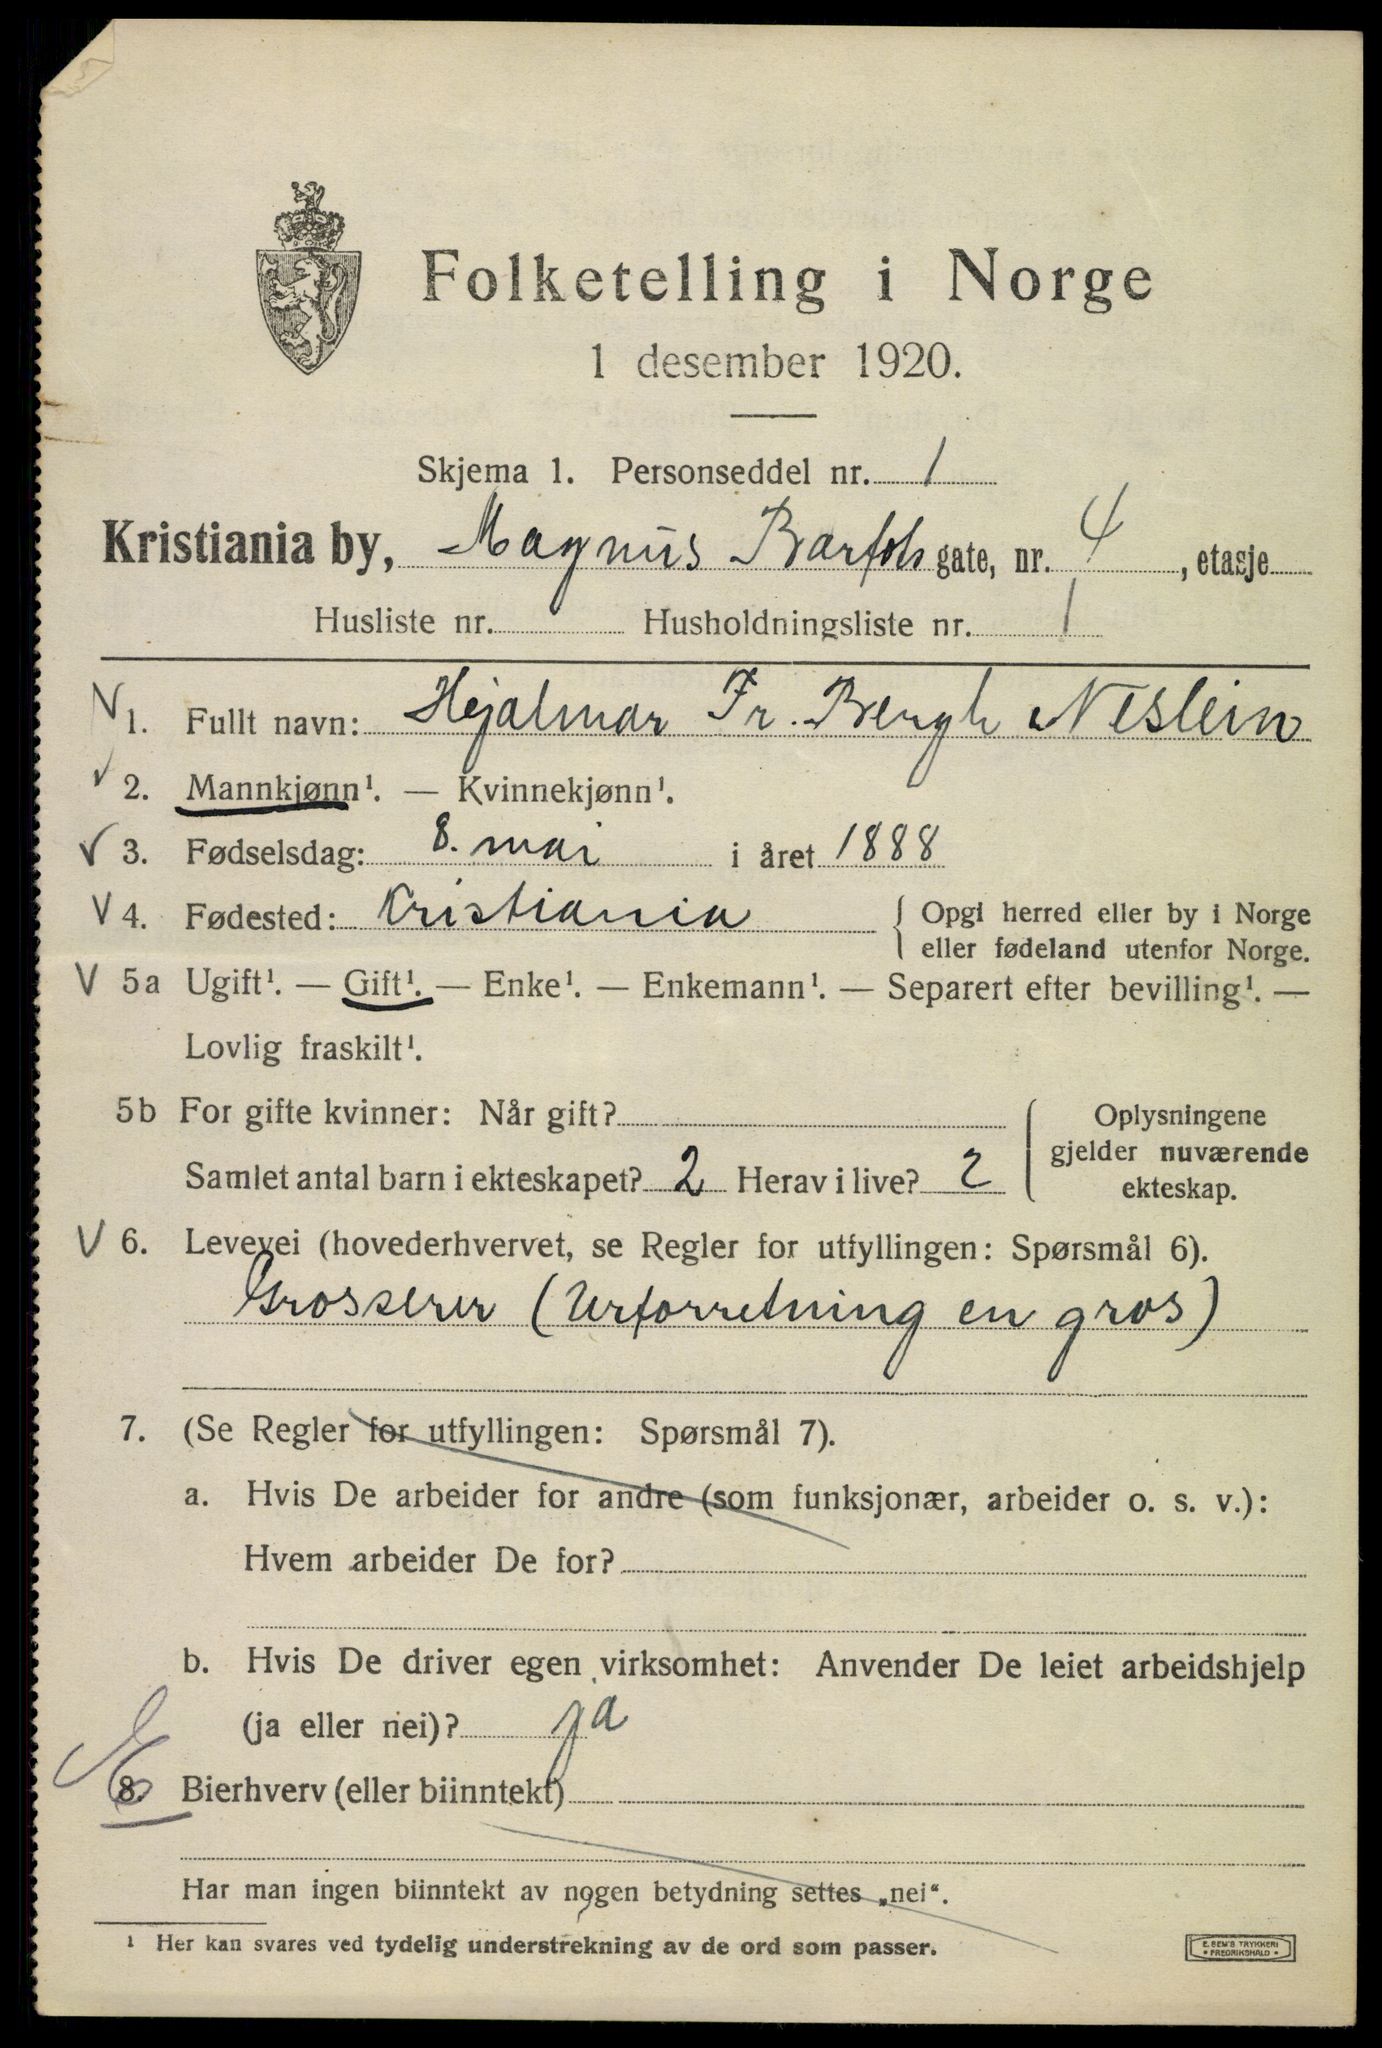 Folketelling i Norge
1 desember 1920.
Skjema 1. Personseddel nr. 1
Kristiania by, Magnus Barfots gate, nr. 4, etasje
Husliste nr. Husholdningsliste nr. 1
V 1. Fullt navn: Hjalmar Fr. Bergh Neslein
✓ 2. Mannkjønn¹. — Kvinnekjønn¹.
V 3. Fødselsdag: 8. mai i året 1888
V 4. Fødested: Kristiania { Opgi herred eller by i Norge
eller fødeland utenfor Norge.
V 5a Ugift¹. — Gift¹. — Enke¹. — Enkemann¹. — Separert efter bevilling¹. —
Lovlig fraskilt¹.
5b For gifte kvinner: Når gift? { Oplysningene
gjelder nuværende
ekteskap.
Samlet antal barn i ekteskapet? 2 Herav i live? 2
V 6. Levevei (hovederhvervet, se Regler for utfyllingen: Spørsmål 6).
Grosserer (Urforretning en gros)
7. (Se Regler for utfyllingen: Spørsmål 7).
a. Hvis De arbeider for andre (som funksjonær, arbeider o. s. v.):
Hvem arbeider De for?
b. Hvis De driver egen virksomhet: Anvender De leiet arbeidshjelp
(ja eller nei)? ja
8. Bierhverv (eller biinntekt)
Har man ingen biinntekt av nogen betydning settes „nei“.
¹ Her kan svares ved tydelig understrekning av de ord som passer.
E. SEM'S TRYKKERI
• FREDRIKSHALD •